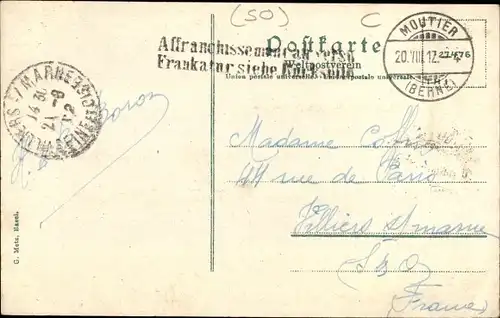 (50)
C
Affranchissement au verso
Postkarte
Frankatur siehe Rückseite
Weltpostverein
Union postale universelle
postale universale
MOUTIER
20.VIII.12
(BERNE)
27476
VILLIERS S/ MARNE
SEINE
14 30
21 - 8
12
Madame
44 rue de Paris
Villiers s/marne
S & O
(France)
G. Metz, Basel.